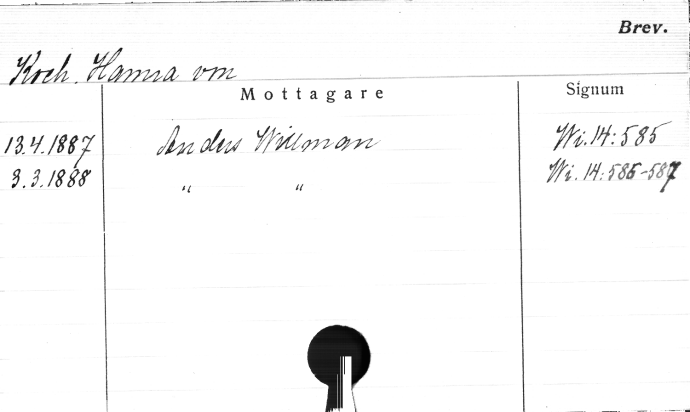 Brev.
Koch, Hanna von
Mottagare Signum
13.4.1887 Anders Willman Wi.14:585
3.3.1888 " " Wi.14:585-587